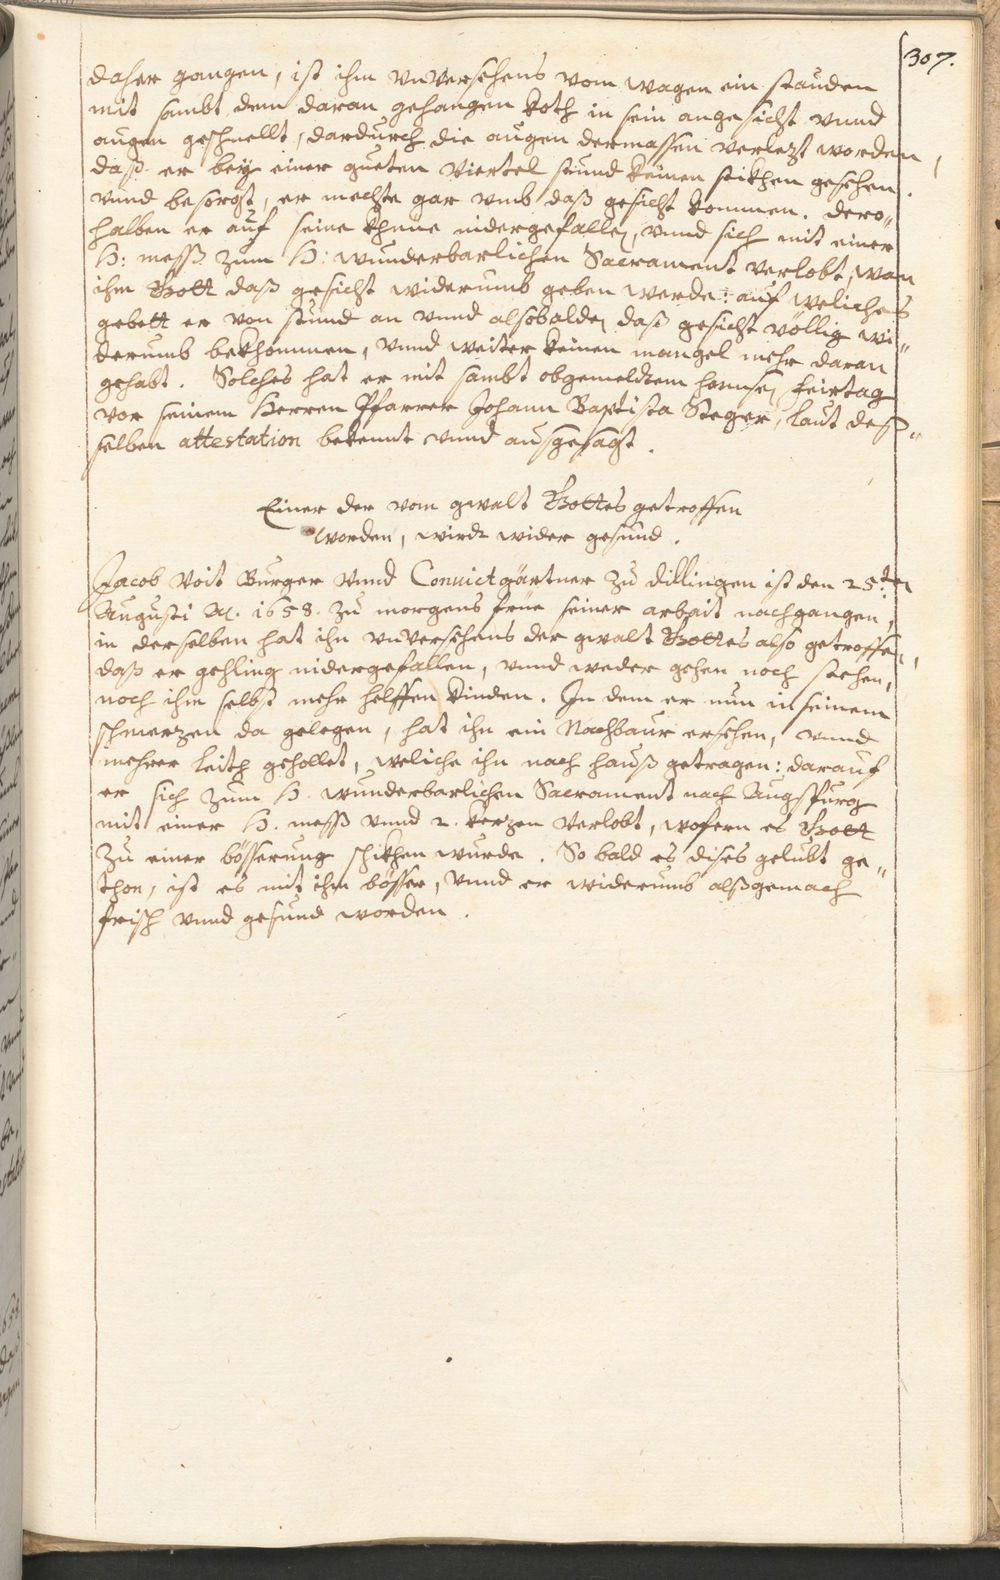 307.
daher gangen, ist ihm vnversehens vom wagen ein stauden
mit sambt dem daran gehangen Koth in sein angesicht vnnd
augen geschnellt, dardurch die augen dermassen verlezt worden,
daß er bey einer gueten viertel stund keinen stikhen gesehen.
vnnd besorgt, er mechte gar vmb daß gesicht kommen. dero„
halben er auf seine khnüe nidergefallen, vnnd sich mit einer
H: mess zum H: wunderbarlichen Sacrament verlobt, wan
ihm Gott daß gesicht widerumb geben werde: auf weliches
gebett er von stund an vnnd alsobalden daß gesicht völlig wi„
derumb bekhommen, vnnd weiter keinen mangel mehr daran
gehabt. Solches hat er mit sambt obgemeldtem hansen feirtag
vor seinem Herren Pfarrer Johann Baptista Steger, laut deß„
selben attestation bekennt vnnd ausgesagt.
Einer der vom gwalt Gottes getroffen
worden, wirdt wider gesund.
Jacob Voit Burger vnnd Convictgärtner zu Dillingen ist den 25:ten
Augusti A. 1658. zu morgens früe seiner arbait nachgangen,
in derselben hat ihn vnversehens der gwalt Gottes also getroffen,
daß er gehling nidergefallen, vnnd weder gehen noch stehen,
noch ihm selbst mehr helffen kinden. In dem er nun in seinem
schmerzen da gelegen, hat ihn ein Nachbaur ersehen, vnnd
mehrer leith gehollet, weliche ihn nach hauß getragen: darauf
er sich zum H. wunderbarlichen Sacrament nach Augspurg
mit einer H. mess vnnd 2. kerzen verlobt, wofern es Gott
zu einer bösserung schikhen wurde. So bald es dises gelübt ge„
thon, ist es mit ihm bösser, vnnd er widerumb alßgemach
frisch vnnd gesund worden.